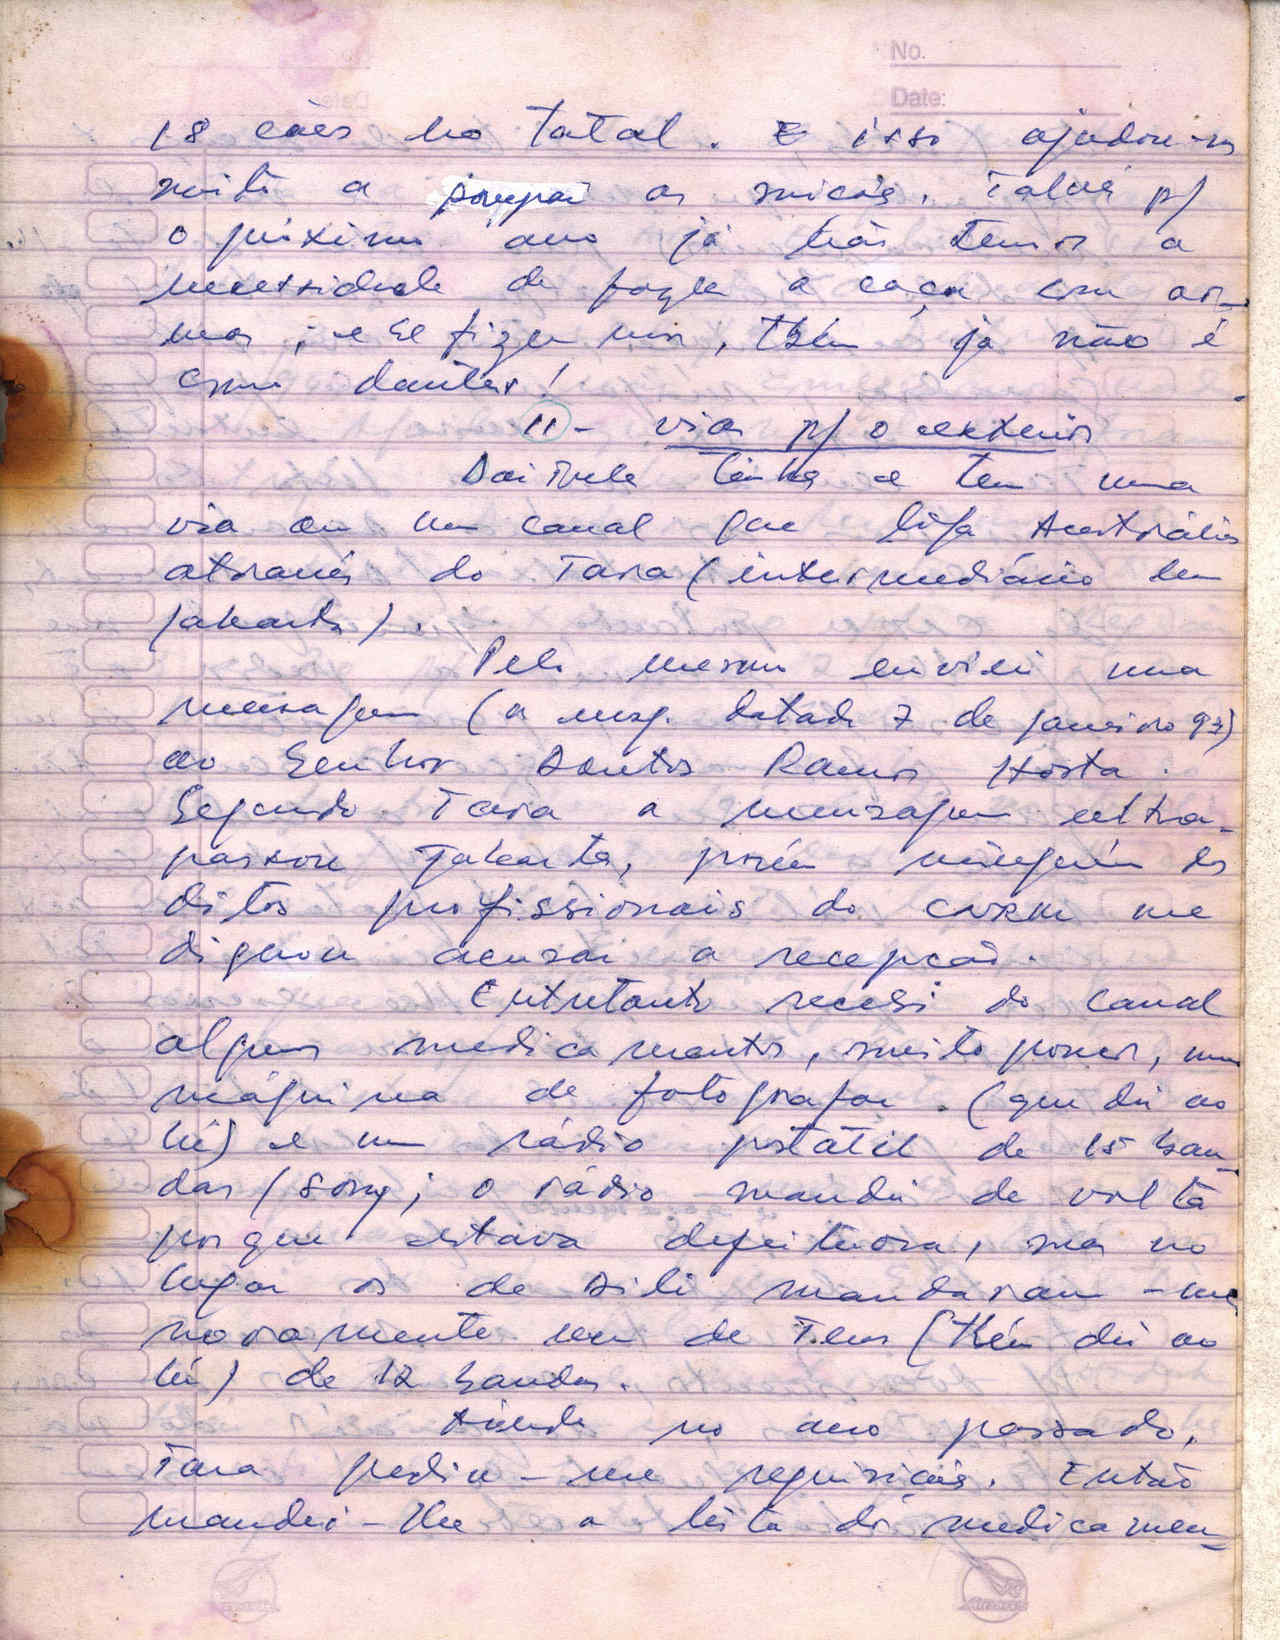 No.
Date:
18 cães no total. E isso ajudou-n
muito a poupar as munições. Talvez p/
o próximo ano já não temos a
necessidade de fazer a caça com ar-
mas; e se fizermos, tbém já não é
como dantes!
11 - vias p/ o exterior
Daitula tinha e tem uma
via ou um canal que liga Austrália
através do Tara (intermediário em
Jakarta).
Pelo mesmo enviei uma
mensagem (a msg. datada 7 de janeiro 93)
ao Senhor Santos Ramos Horta.
Segundo Tara a mensagem ultra-
passou Jakarta, porém ninguém dos
ditos profissionais do CNRM me
dignou acusar a recepção.
Entretanto recebi do canal
alguns medicamentos, muito poucos, uma
máquina de fotografar (que dei ao
Lú) e um rádio portátil de 15 ban-
das (Sony; o rádio mandei de volta
porque estava defeituosa, mas no
lugar os de Dili mandaram-me
novamente um de Tens (tbém dei ao
Lú) de 12 bandas.
Ainda no ano passado,
Tara pediu-me requisições. Então
mandei-lhe a lista dos medicamen-